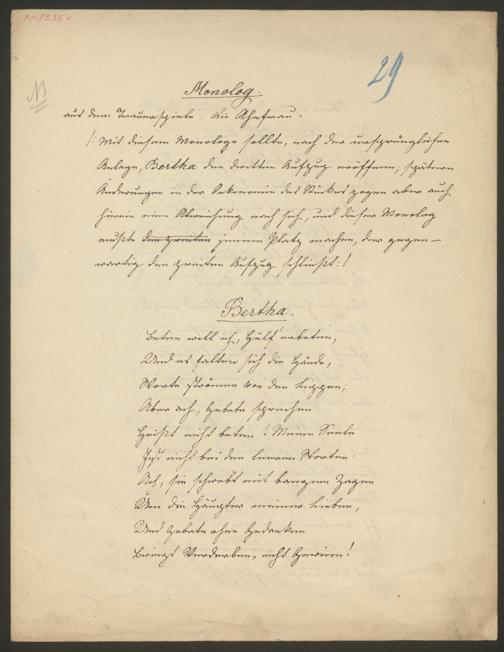 29
Monolog.
aus dem Trauerspiele: die Ahnfrau.
/: Mit diesem Monologe sollte, nach der ursprünglichen
Anlage, Bertha den dritten Aufzug eröffnen; spätere
Änderungen in der Oekonomie des Stückes zogen aber auch
hierin eine Abweichung nach sich, und dieser Monolog
mußte den zweiten jenem Platz machen, der gegen-
wärtig den zweiten Aufzug schließt: /
Bertha.
Beten will ich, Hülf' erbeten,
Und es falten sich die Hände,
Worte strömen von den Lippen;
Aber ach, Gebete sprechen
Heißt nicht beten! Meine Seele
Ist nicht bei den leeren Worten:
Ach, sie schwebt mit bangem Zagen
Um die Häupter meiner Lieben,
Und Gebete ohne Gedanken
Bringt Verderben, nicht Gewinn!